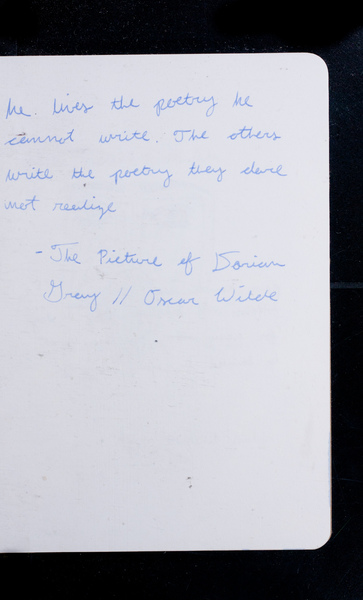 he. lives the poetry he
cannot write. The others
write the poetry they dare
not realize
- The Picture of Dorian
Gray // Oscar Wilde